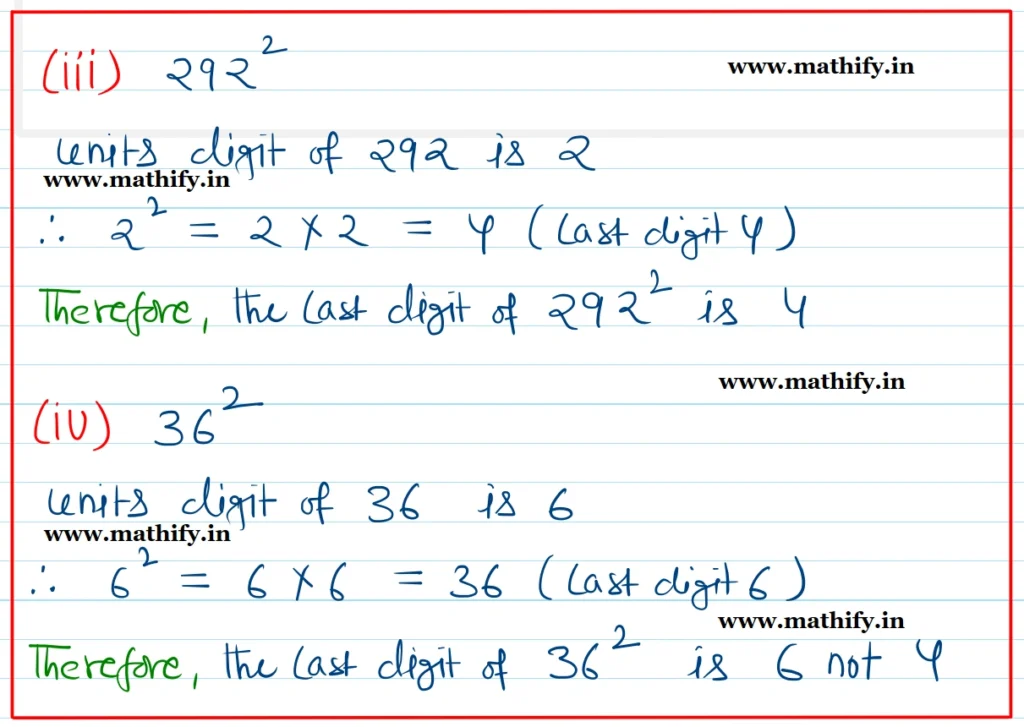 (iii) 292²
www.mathify.in
units digit of 292 is 2
www.mathify.in
∴ 2² = 2 × 2 = 4 (last digit 4)
Therefore, the last digit of 292² is 4
www.mathify.in
(iv) 36²
units digit of 36 is 6
www.mathify.in
∴ 6² = 6 × 6 = 36 (last digit 6)
www.mathify.in
Therefore, the last digit of 36² is 6 not 4